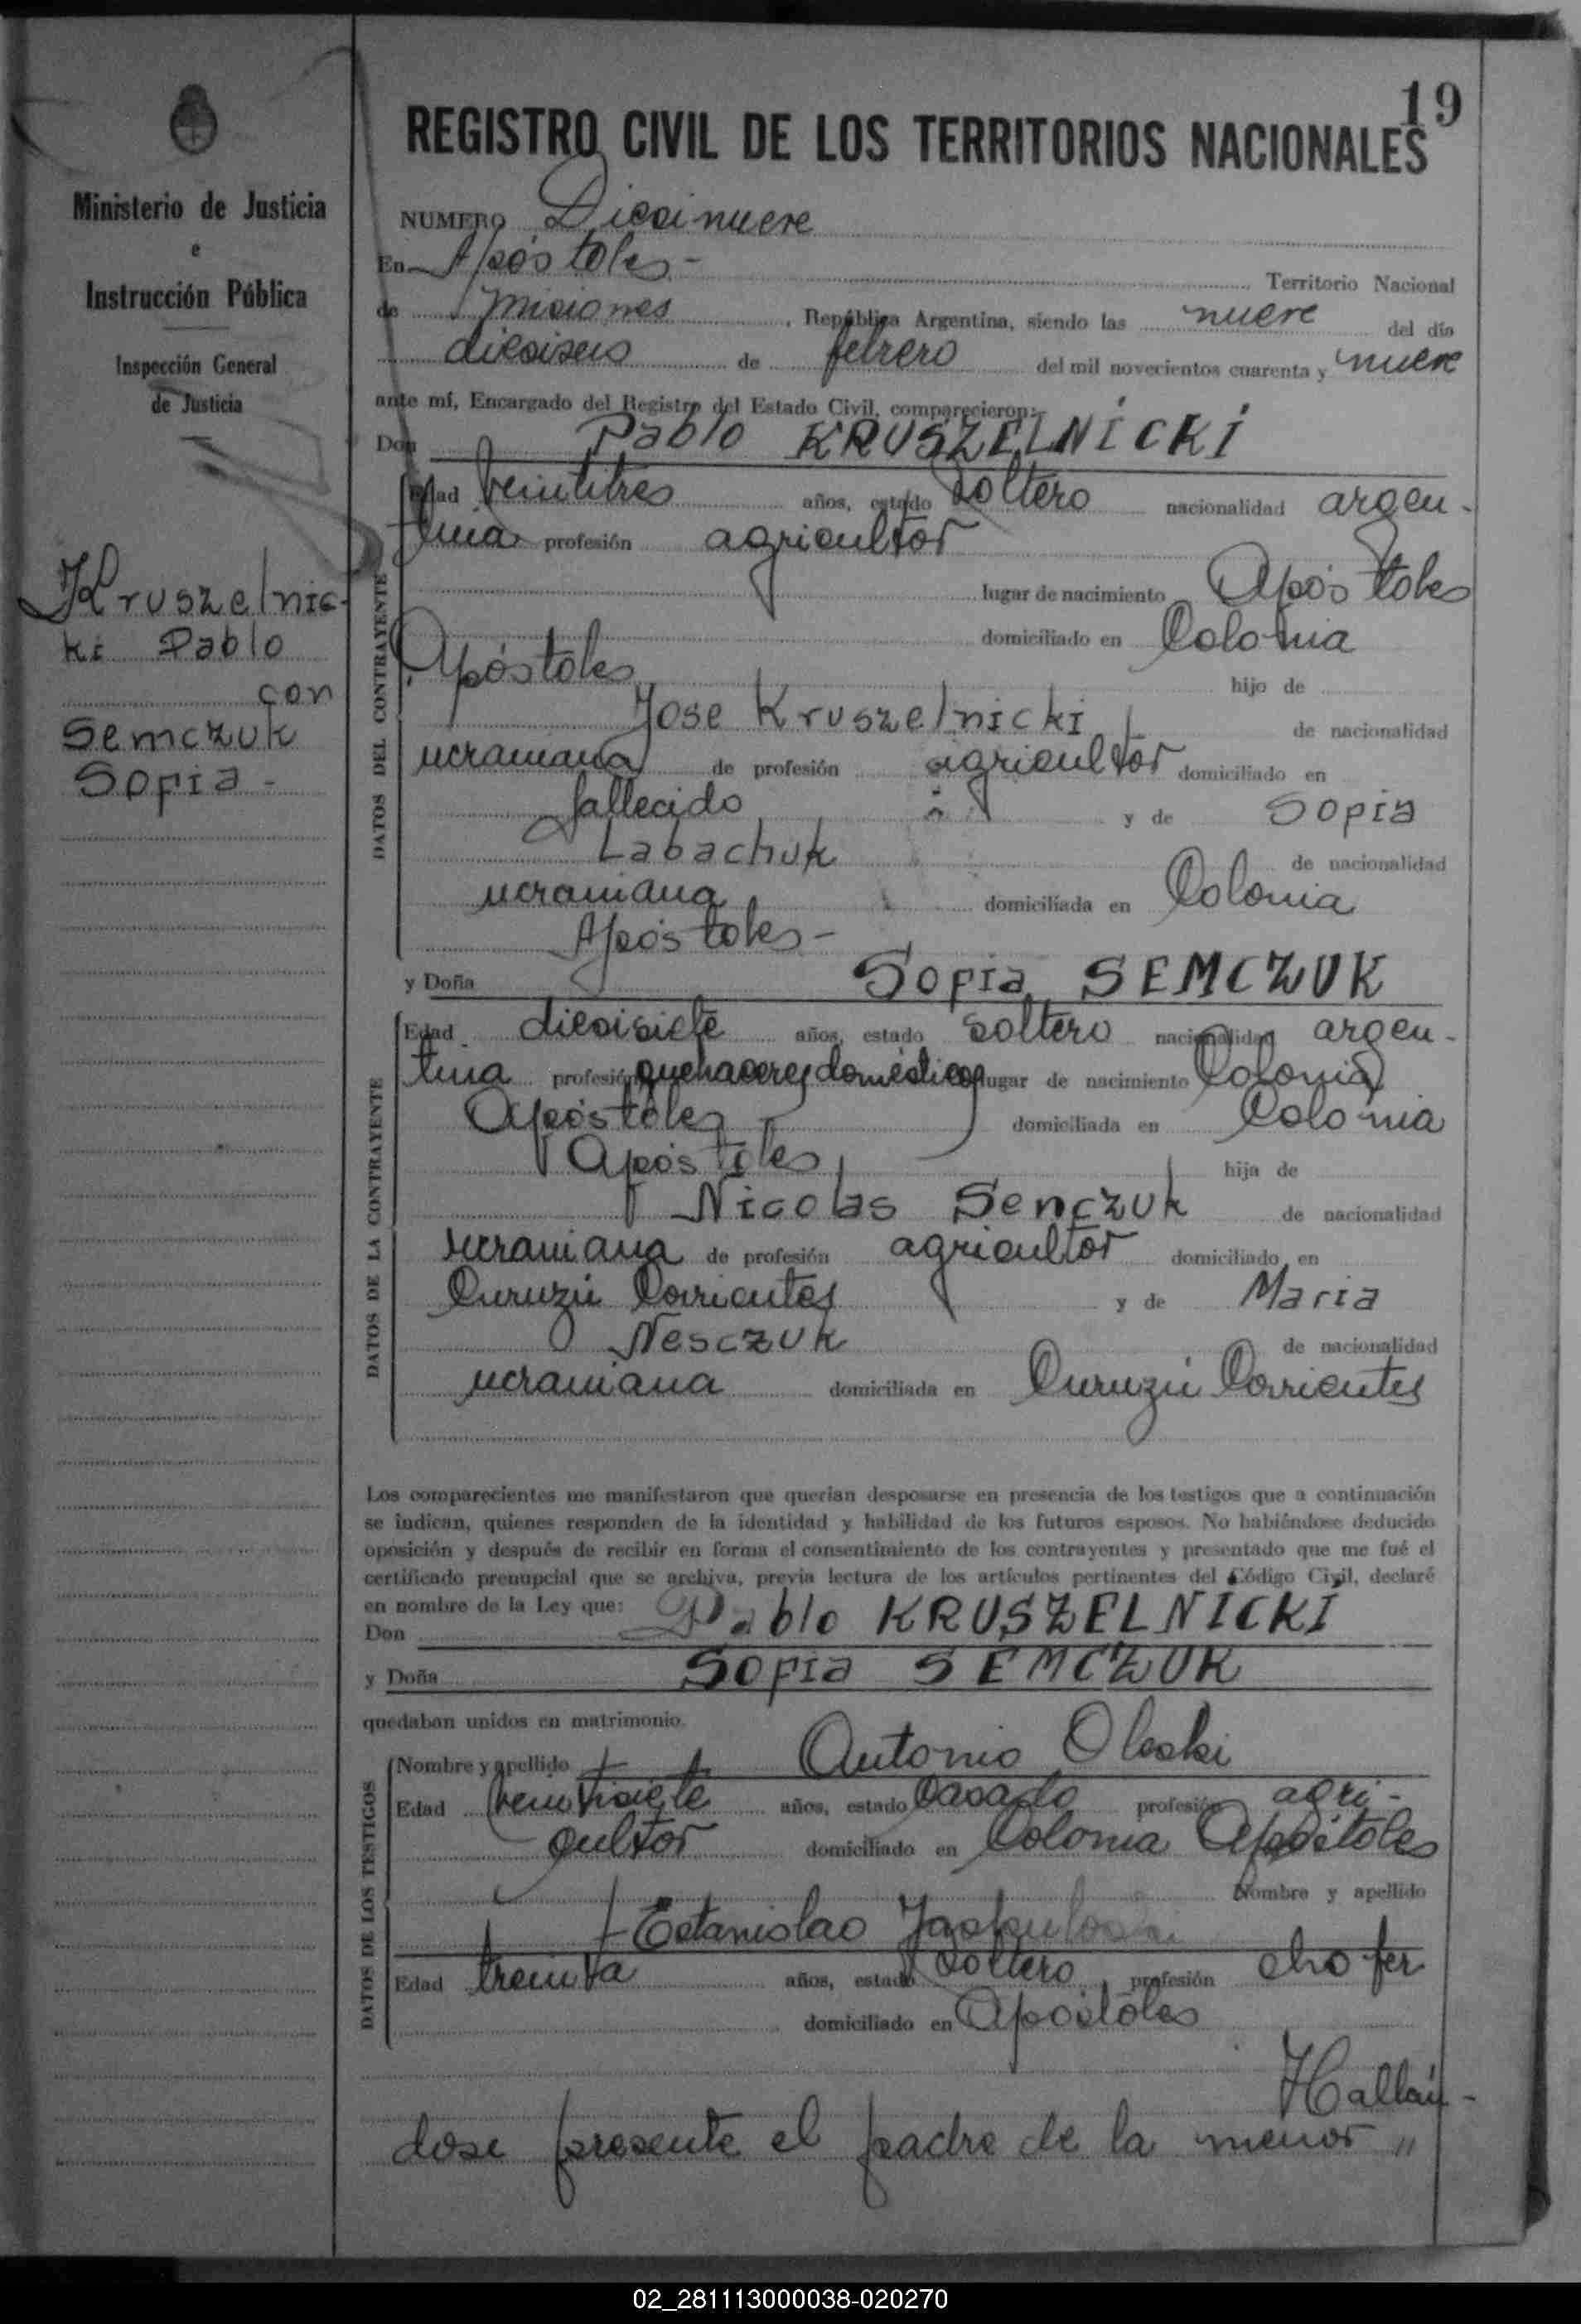 19
REGISTRO CIVIL DE LOS TERRITORIOS NACIONALES
Ministerio de Justicia
e
Instrucción Pública
Inspección General
de Justicia
Kruszelnic-
ki Pablo
con
Semczuk
Sofia -
NUMERO Diecinueve
En Apóstoles - Territorio Nacional
de Misiones, República Argentina, siendo las nueve del día
dieciseis de febrero del mil novecientos cuarenta y nueve
ante mí, Encargado del Registro del Estado Civil, comparecieron:
Don Pablo KRUSZELNICKI
DATOS DEL CONTRAYENTE
Edad veintitres años, estado soltero nacionalidad argen-
tina profesión agricultor
lugar de nacimiento Apóstoles
domiciliado en Colonia
Apóstoles hijo de
Jose Kruszelnicki de nacionalidad
ucraniana de profesión agricultor domiciliado en
fallecido y de Sofia
Labachuk de nacionalidad
ucraniana domiciliada en Colonia
Apóstoles -
y Doña Sofia SEMCZUK
DATOS DE LA CONTRAYENTE
Edad diecisiete años, estado soltero nacionalidad argen-
tina profesión quehaceres domésticos lugar de nacimiento Colonia
Apóstoles domiciliada en Colonia
Apóstoles hija de
Nicolas Senczuk de nacionalidad
ucraniana de profesión agricultor domiciliado en
Curuzú Corrientes y de Maria
Nesczuk de nacionalidad
ucraniana domiciliada en Curuzú Corrientes
Los comparecientes me manifestaron que querían desposarse en presencia de los testigos que a continuación
se indican, quienes responden de la identidad y habilidad de los futuros esposos. No habiéndose deducido
oposición y después de recibir en forma el consentimiento de los contrayentes y presentado que me fué el
certificado prenupcial que se archiva, previa lectura de los artículos pertinentes del Código Civil, declaré
en nombre de la Ley que:
Don Pablo KRUSZELNICKI
y Doña Sofia SEMCZUK
quedaban unidos en matrimonio.
DATOS DE LOS TESTIGOS
Nombre y apellido Antonio Oleski
Edad veintisiete años, estado casado profesión agri-
cultor domiciliado en Colonia Apóstoles
Nombre y apellido
Estanislao
Edad treinta años, estado soltero, profesión chofer
domiciliado en Apóstoles
Hallán-
dose presente el padre de la menor "
02_281113000038-020270